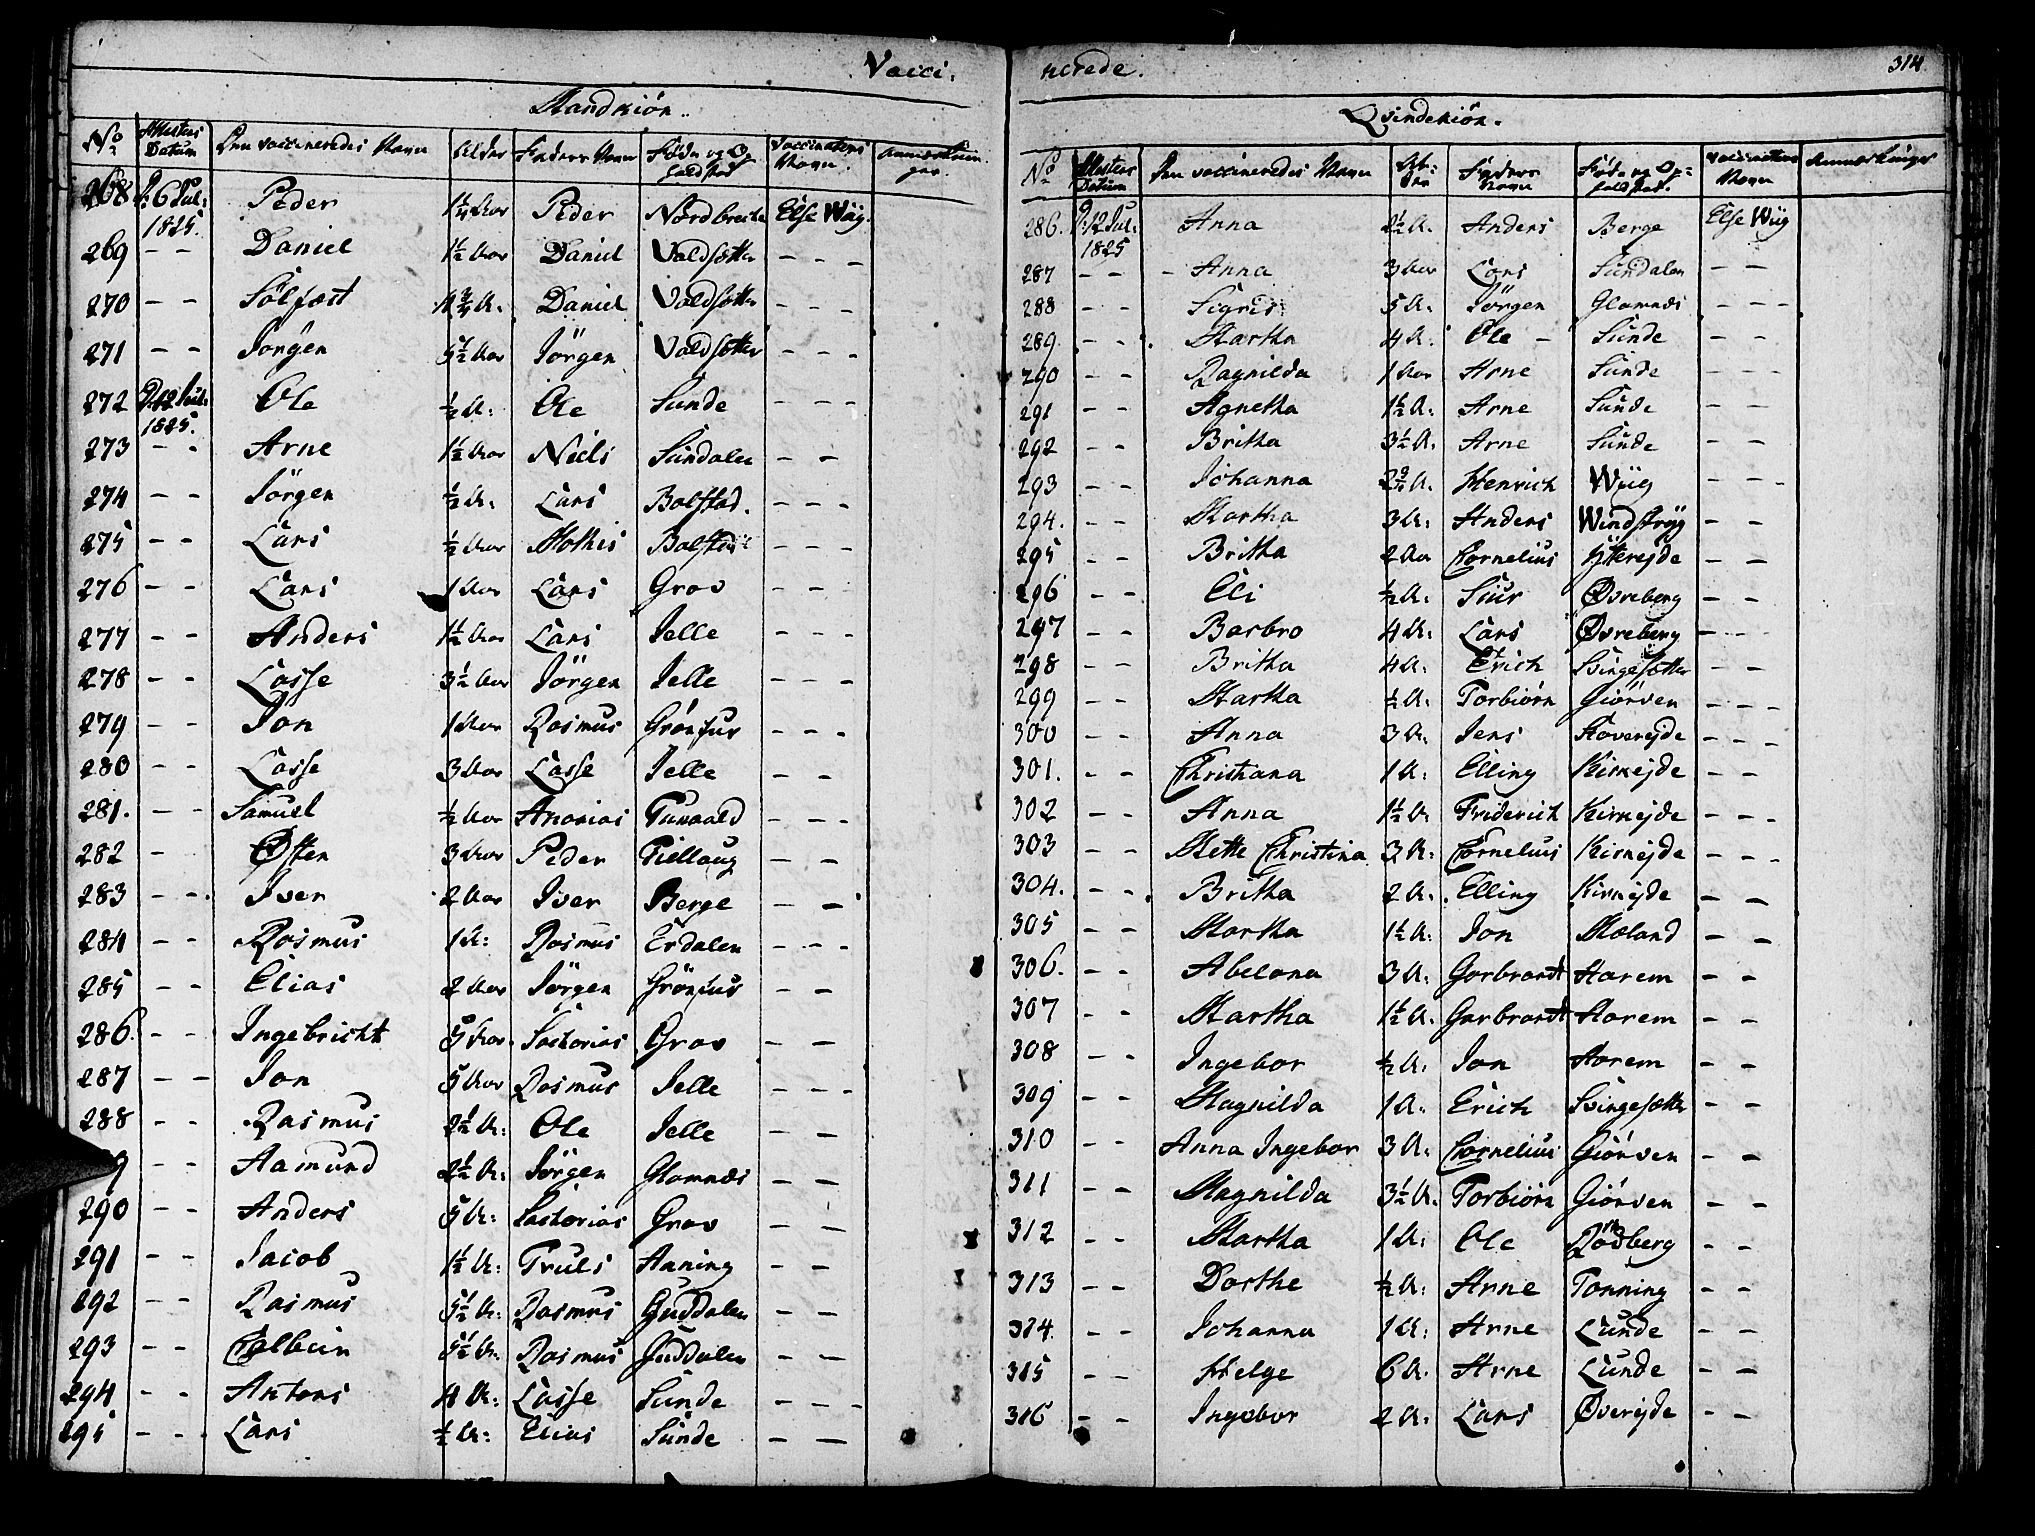 Vacci-
Mandkiøn.
No Attestens Datum Den vaccineredes Navn Alder Faders Navn Føde og Op- holdsted Vaccinateurs Navn. Anmærknin- ger
268 D: 6 Jul: 1825. Peder 1¼ Aar Peder Nordbrecke Else Wiig.
269 - - Daniel 1½ Aar Daniel Voldsætter - - -
270 - - Sölfæst A: Daniel Voldsætter - - -
271 - - Jörgen 5½ Aar Jörgen Voldsætter - - -
272 D: 12 Jul: 1825. Ole ½ A: Ole Sunde - - -
273 - - Arne 1½ Aar Niels Sundalen - -
274 - - Jörgen ½ A: Lars Bolstad. - - -
275 - - Lars ½ Aar Mothis Bolstad - - -
276 - - Lars 1 Aar Lars Grov - -
277 - - Anders 1½ Aar Lars Jelle - - -
278 - - Lasse 3½ Aar Jörgen Jelle - - -
279 - - Jon 1 Aar Rasmus Grönfur - - -
280 - - Lasse 3 Aar Lasse Jelle - -
281. - - Samuel ½ Aar Ananias Tunaald - -
282 - Østen 3 Aar Peder Tiellaug - -
283 - - Iver 2 Aar Iver Berge - -
284 - - Rasmus 1 A: Rasmus Erdalen - - -
285 - - Elias 2 Aar Jörgen Grönfur - -
286. - - Ingebricht 5 Aar. Sacharias Grov - -
287 - - Jon 5 Aar Rasmus Jelle - - -
288 - - Rasmus 2½ A: Ole Jelle - -
9 - - Aamund 2½ A: Jörgen Glomnæs - -
290 - - Anders 5 A: Sacharias Grov - -
291 - - Jacob 1½ A: Truls Aaning - -
292 - - Rasmus 5½ A: Rasmus Guddalen - -
293 - - Colbein 5½ A: Rasmus Guddalen - -
294 - - Antons 4 A: Lasse Sunde - - -
295 - - - Lars ½ A: Elias Sunde - -
nerede. 314
Qvindekiön.
No Attestens Datum Den vaccineredes Navn Al- der Faders Navn Föde og Op- holdsted. Vaccinateurs Navn Anmærkninger
286. D: 12 Jul: 1825 Anna 2½ A. Anders Berge Else Wiig
287 - - - Anna 3 Aar Lars Sundalen - -
288 - - Sigrid 5 A: Jörgen Glomnæs - - -
289. - - - Martha 4 A: Ole - Sunde - - -
290 - - Ragnilda 1 Aar Arne Sunde - - -
291 - - Agnetha 1½ A: Arne Sunde - - -
292 - - Britha 3½ A: Arne Sunde - -
293 - - Johanna A. Henrich Wiig - - -
294. - - Martha 3 A: Anders Windstryg - -
295 - - Britha 2 Aar Cornelius Ytterejde - -
296 - - Eli ½ A: Siur Øvreberg - -
297 - - Barbro 4 A: Lars Øvreberg - - -
298 - - Britha 4 A: Erich Svingesætter - -
299 - - Martha ½ A: Torbiörn Giörven - - -
300 - - Anna 3 A: Jens Haverejde - - -
301. - - Christiana 1 A: Elling Kirkejde - -
302 - - Anna 1½ A: Friderich Kirkejde - - -
303 - - Mette Christina 3 A: Cornelius Kirkejde - - -
304. - - Britha 2 A. Elling Kirkejde - -
305 - - Martha 1½ A: Jon Moland - -
306. - - Abelona 3 A: Garbrandt Aarem - -
307 - - Martha 1½ A. Garbrandt Aarem - -
308 - - Ingebor ½ A: Jon Aarem - -
309 - - Magnilda 1 A: Erich Svingesætter - -
310 - - Anna Ingebor 3 A: Cornelius Giörven - -
311 - - Magnilda 3½ A: Torbiörn Giörven - -
312 - - Martha 1 A: Ole Rödberg - -
313 - - Dorthe ½ A: Arne Tonning - -
314. - - Johanna 1 A: Arne Lunde - -
315 - - Helge 6 A: Arne Lunde - -
316 - - Ingebor 2 A: Lars Øverejde - -